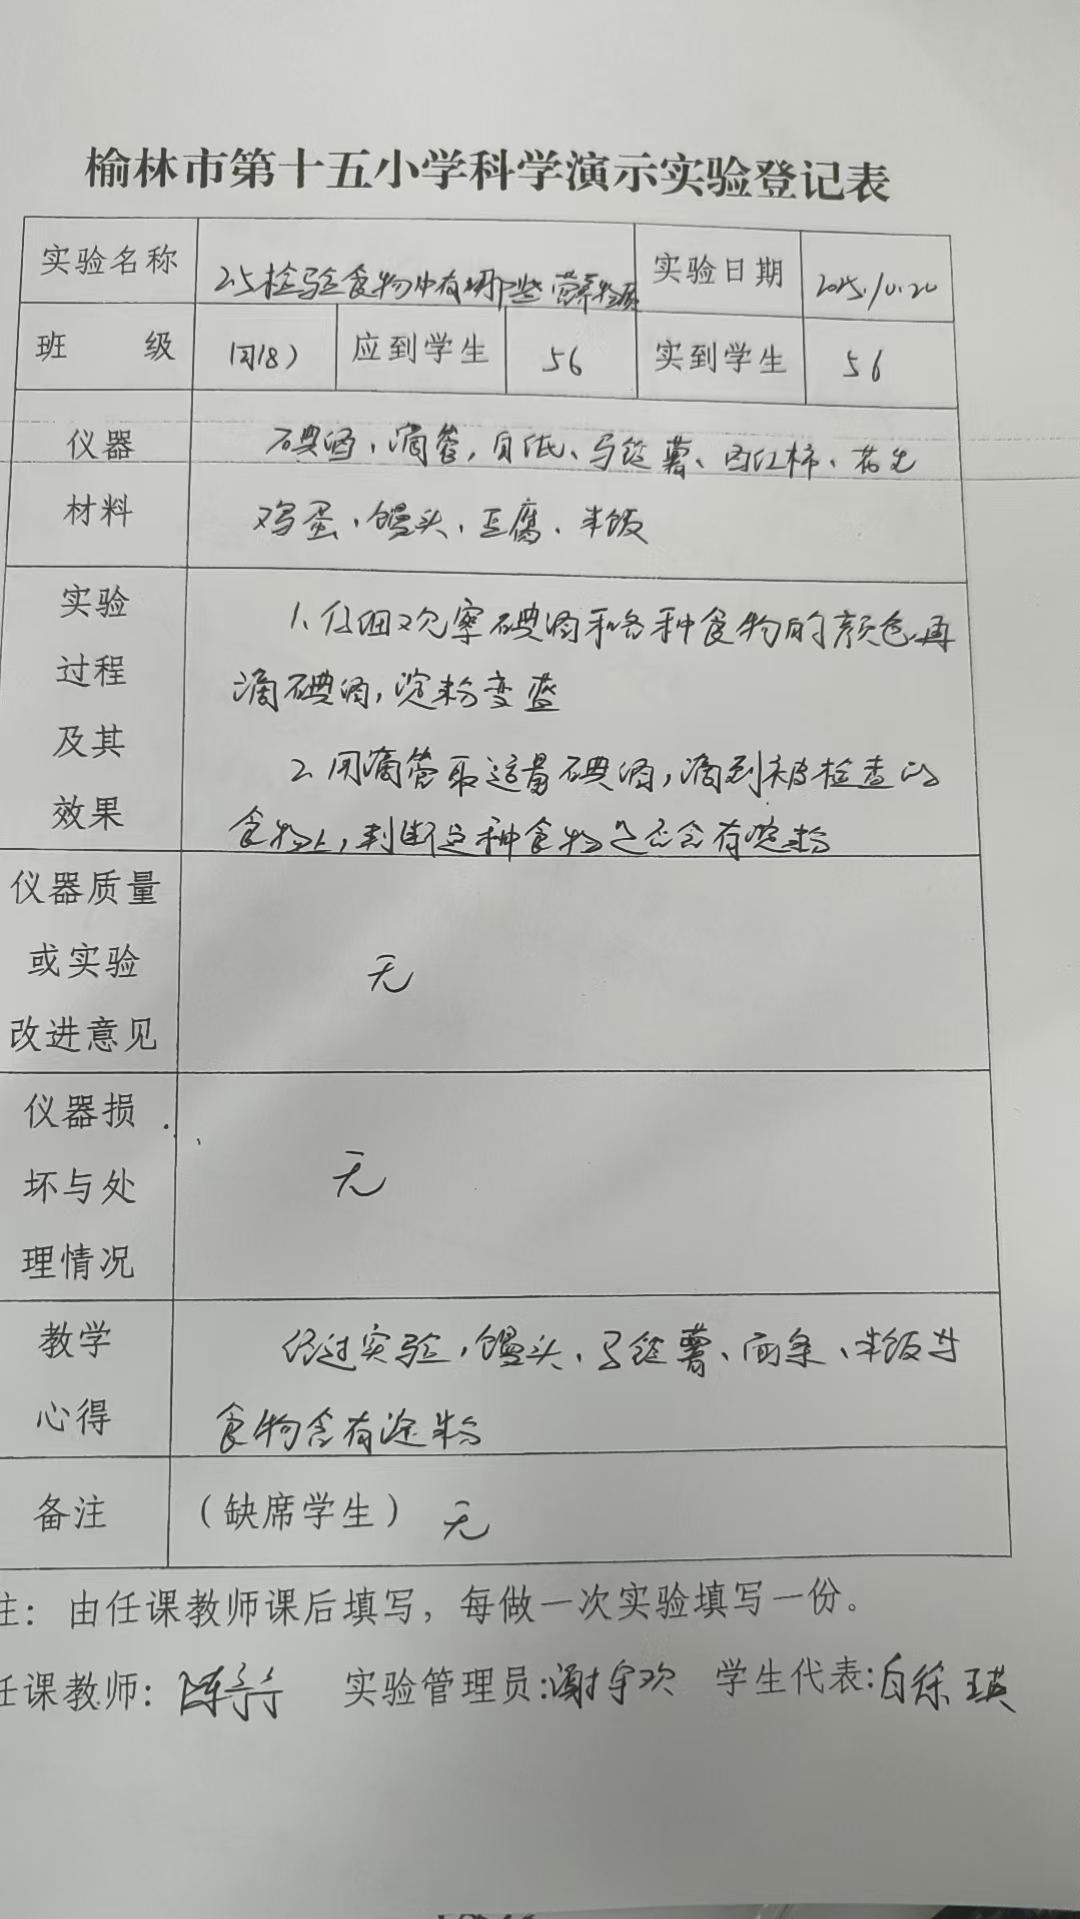 榆林市第十五小学科学演示实验登记表
实验名称 2.5检验食物中有哪些营养物质 实验日期 2025.10.20
班 级 应到学生 56 实到学生 56
仪器 碘酒、滴管,白纸、马铃薯、西红柿、花生
材料 鸡蛋、馒头、豆腐、米饭
实验 1、仔细观察碘酒和各种食物的颜色再
过程 滴碘酒,淀粉变蓝
及其 2、用滴管取适量碘酒,滴到被检查的
效果 食物上,判断这种食物是否含有淀粉
仪器质量
或实验 无
改进意见
仪器损
坏与处 无
理情况
教学 经过实验,馒头、马铃薯、面条、米饭等
心得 食物含有淀粉
备注 (缺席学生) 无
注:由任课教师课后填写,每做一次实验填写一份。
任课教师: 实验管理员:谢宇欢 学生代表:白